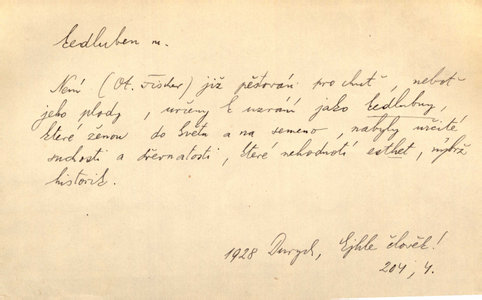 Kedluben m.
Není (Ot. Fischer) již pěstován pro chuť, neboť
jeho plody, určeny k uzrání jako kedlubny,
které ženou do květu a na semeno, nabyly určité
suchosti a dřevnatosti, které nehodnotí esthet, nýbrž
historik.
1928 Durych, Ejhle člověk!
204, 4.